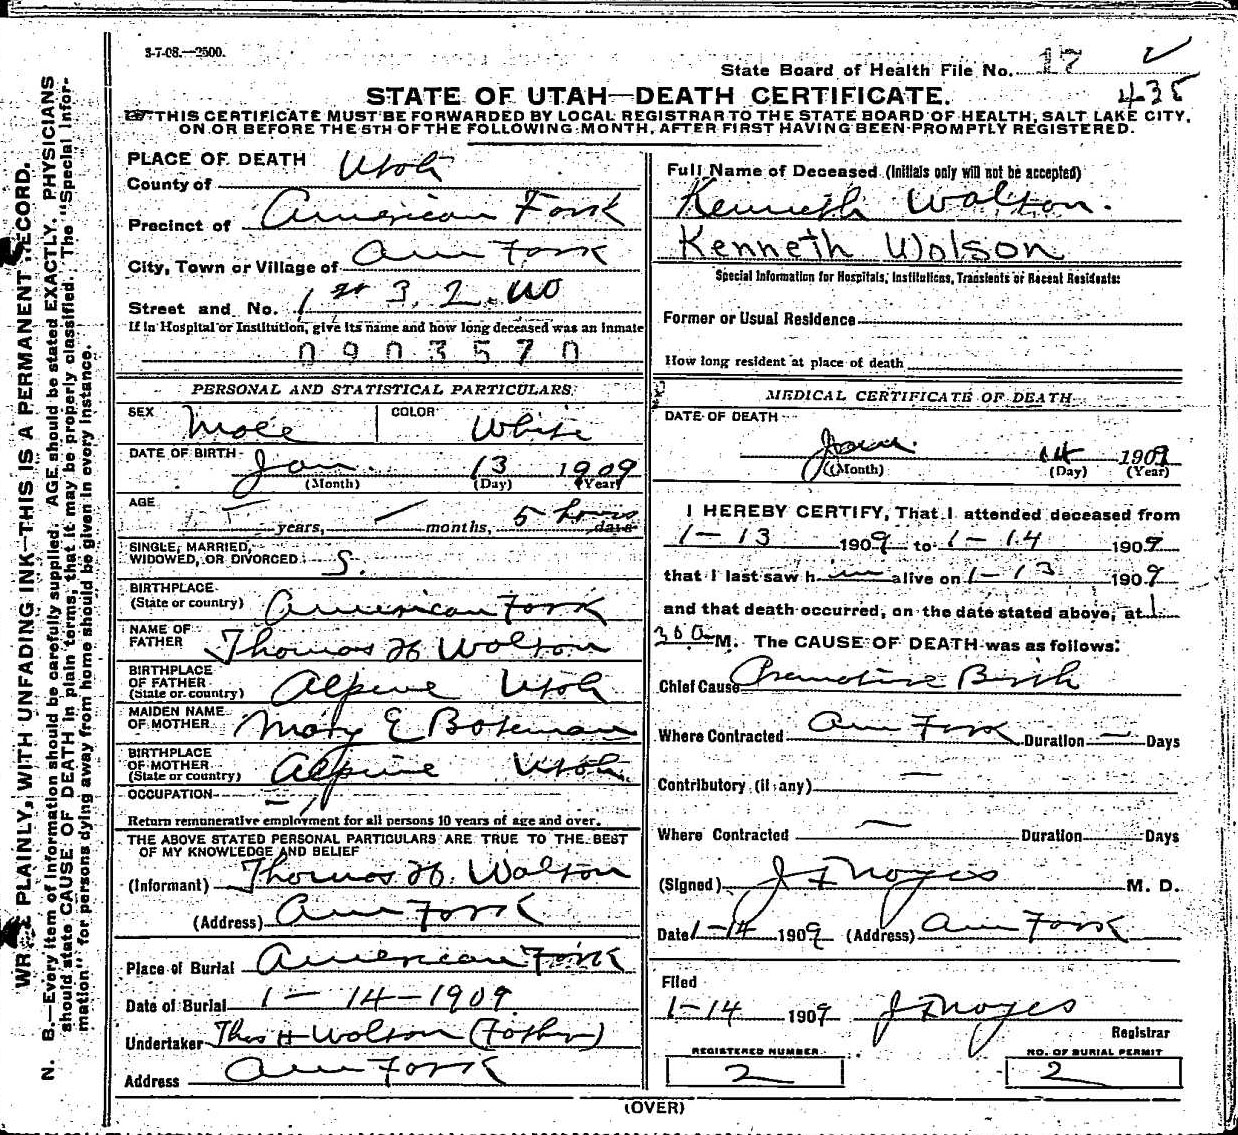 3-7-08.—2500.
State Board of Health File No. 17
435
STATE OF UTAH—DEATH CERTIFICATE.
THIS CERTIFICATE MUST BE FORWARDED BY LOCAL REGISTRAR TO THE STATE BOARD OF HEALTH, SALT LAKE CITY,
ON OR BEFORE THE 5TH OF THE FOLLOWING MONTH, AFTER FIRST HAVING BEEN PROMPTLY REGISTERED.
WRITE PLAINLY, WITH UNFADING INK—THIS IS A PERMANENT RECORD.
N. B.—Every item of information should be carefully supplied. AGE should be stated EXACTLY. PHYSICIANS
should state CAUSE OF DEATH in plain terms, that it may be properly classified. The "Special Infor-
mation" for persons dying away from home should be given in every instance.
PLACE OF DEATH
County of Utah
Precinct of American Fork
City, Town or Village of Am Fork
Street and No. 1st 3. 2. wo
If in Hospital or Institution, give its name and how long deceased was an inmate
0903570
PERSONAL AND STATISTICAL PARTICULARS.
SEX Male COLOR White
DATE OF BIRTH Jan. 13 1909
(Month) (Day) (Year)
AGE
— years, — months, 5 hours days
SINGLE, MARRIED,
WIDOWED, OR DIVORCED S.
BIRTHPLACE
(State or country) American Fork
NAME OF
FATHER Thomas H Walton
BIRTHPLACE
OF FATHER
(State or country) Alpine Utah
MAIDEN NAME
OF MOTHER Mary E Bateman
BIRTHPLACE
OF MOTHER
(State or country) Alpine Utah.
OCCUPATION
Return remunerative employment for all persons 10 years of age and over.
THE ABOVE STATED PERSONAL PARTICULARS ARE TRUE TO THE BEST
OF MY KNOWLEDGE AND BELIEF
(Informant) Thomas H. Walton
(Address) Am Fork
Place of Burial American Fork
Date of Burial 1—14—1909
Undertaker Thos H Walton (Father)
Address Am Fork
Full Name of Deceased (Initials only will not be accepted)
Kenneth Walton.
Kenneth Wolson
Special Information for Hospitals, Institutions, Transients or Recent Residents:
Former or Usual Residence
How long resident at place of death
MEDICAL CERTIFICATE OF DEATH
DATE OF DEATH
Jan. 14 1909
(Month) (Day) (Year)
I HEREBY CERTIFY, That I attended deceased from
1—13 1909 to 1—14 1909
that I last saw h im alive on 1—13 1909
and that death occurred, on the date stated above, at
300 M. The CAUSE OF DEATH was as follows:
Chief Cause Premature Birth
Where Contracted Am Fork Duration — Days
Contributory (if any) —
Where Contracted — Duration Days
(Signed) J F Noyes M. D.
Date 1-14 1909 (Address) Am Fork
Filed
1-14 1909 J F Noyes
Registrar
REGISTERED NUMBER
2
NO. OF BURIAL PERMIT
2
(OVER)